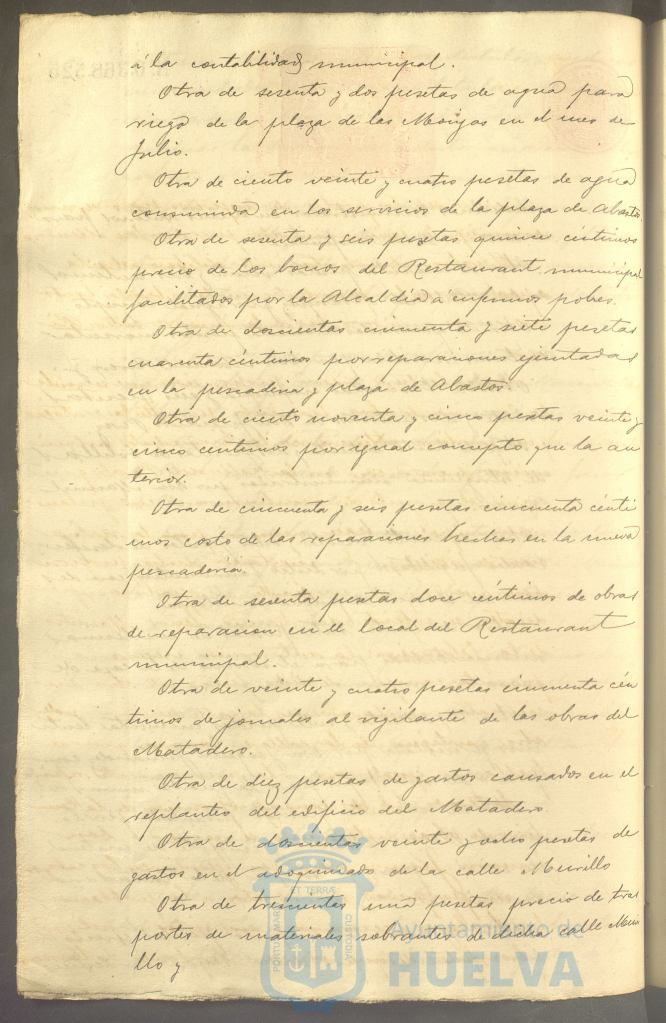 á la contabilidad municipal.
Otra de sesenta y dos pesetas de agua para
riego de la plaza de las Monjas en el mes de
Julio.
Otra de ciento veinte y cuatro pesetas de agua
consumida en los servicios de la plaza de Abastos
Otra de sesenta y seis pesetas quince céntimos
precio de los bonos del Restaurant municipal
facilitados por la Alcaldía á enfermos pobres.
Otra de doscientas cincuenta y siete pesetas
cuarenta céntimos por reparaciones ejecutadas
en la pescaderia y plaza de Abastos.
Otra de ciento noventa y cinco pesetas veinte y
cinco centimos por igual concepto que la an
terior.
Otra de cincuenta y seis pesetas cincuenta cénti
mos costo de las reparaciones hechas en la nueva
pescaderia.
Otra de sesenta pesetas doce céntimos de obras
de reparacion en el local del Restaurant
municipal.
Otra de veinte y cuatro pesetas cincuenta cén
timos de jornales al vigilante de las obras del
Matadero.
Otra de diez pesetas de gastos causados en el
replanteo del edificio del Matadero.
Otra de doscientas veinte y ocho pesetas de
gastos en el adoquinado de la calle Murillo
Otra de trescientas una pesetas precio de tras
portes de materiales sobrantes de dicha calle Muri
llo y
PORTUS MARIS ET TERRÆ CUSTODIA
Ayuntamiento de
HUELVA